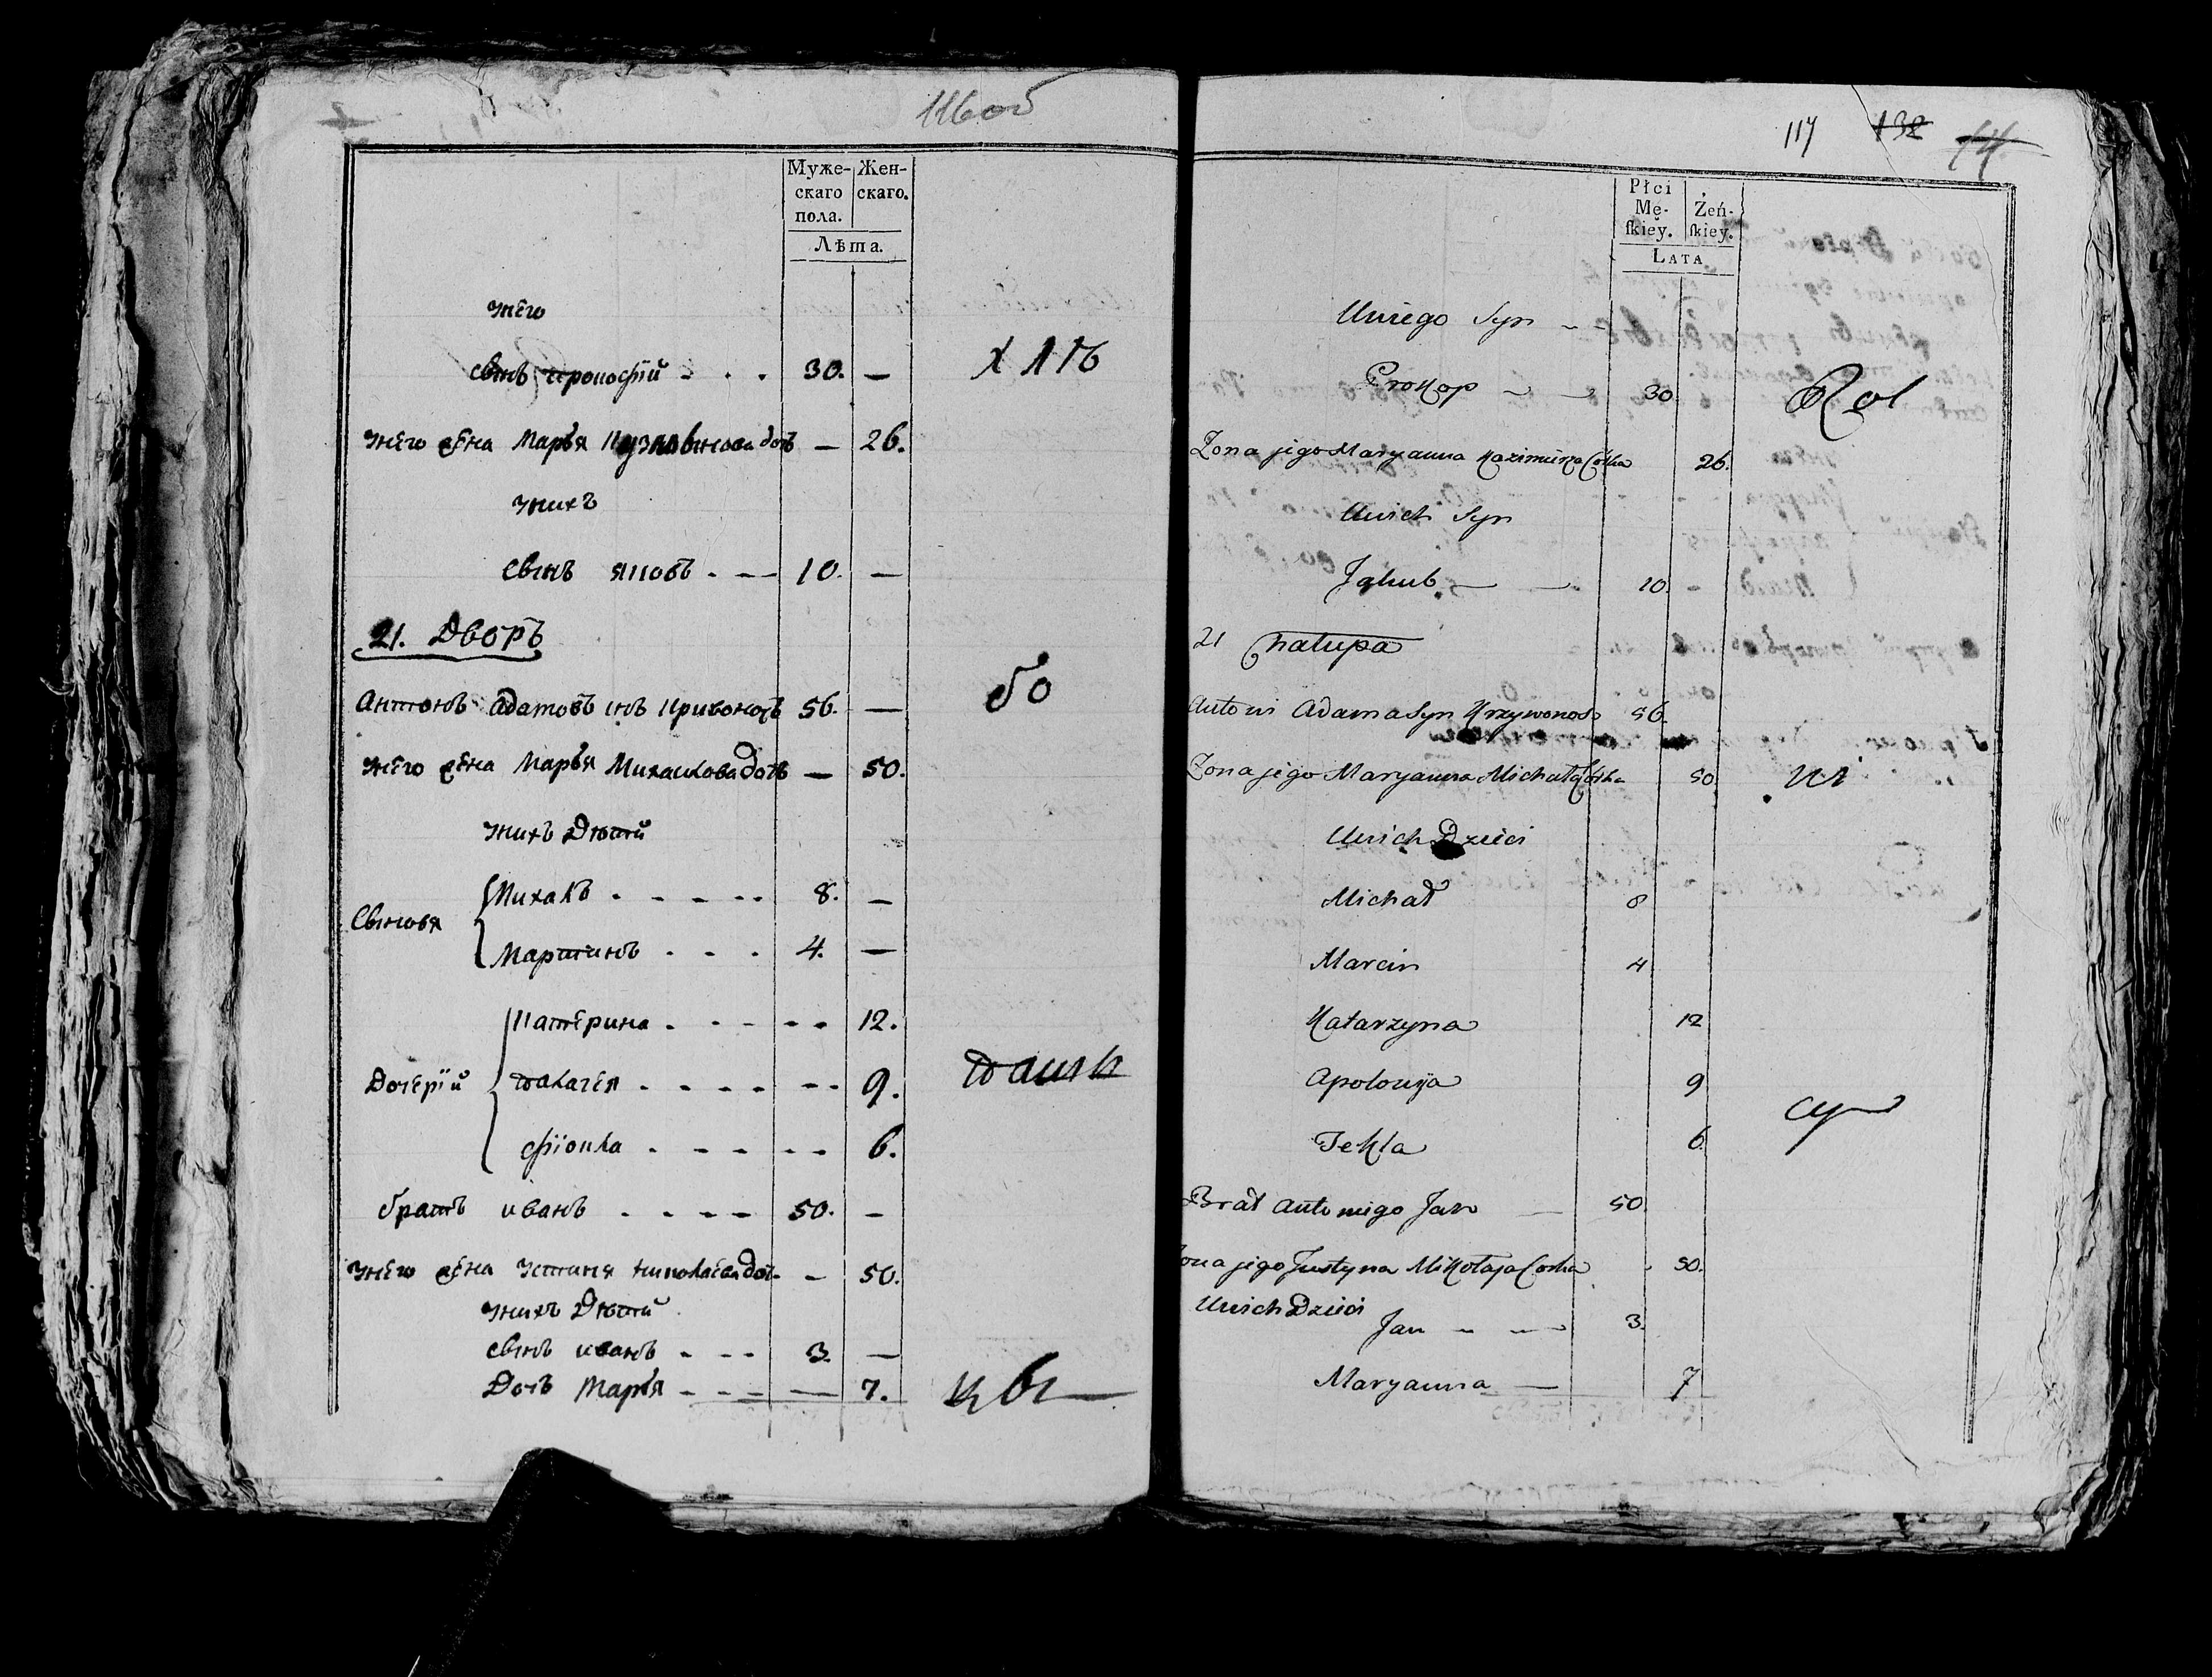 116 об
Муже-
скаго
пола.
Жен-
скаго.
Лѣта.
унего
сынъ Прокофiй - - - 30. —
унего жена Марья Кузмынова дочь — 26.
унихъ
сынъ яковъ - - - 10. —
21. Дворъ
Антонъ Адамовъ снъ Кривоносъ 56. —
унего жена Марья Михалкова дочь — 50.
унихъ Дѣти
Сыновя
Михалъ - - - - - 8. —
Мартинъ - - - 4. —
Дочерiй
Катерина - - - - - 12.
Палагея - - - - - - 9.
Фiокла - - - - - 6.
братъ иванъ - - - - 50. —
унего жена Устиня Николаева доч. — 50.
унихъ Дѣти
сынъ иванъ - - - 3. —
Дочъ Марья - - - — 7.
бо
117 132 14
Płci
Mę-
ſkiey.
Żeń-
ſkiey.
LATA
Uniego Syn
Prokop — — 30
Rol
Zona jego Maryanna Kazimirza Corka 26.
Unich Syn
Jakub — — 10
21 Chałupa
Antoni Adama Syn Krzywonos 56.
Zona jego Maryanna Michała Corka 50
Unich Dzieci
Michał 8
Marcin 4
Katarzyna 12
Apolonija 9
Tekla 6
Brat Antoniego Jan — 50
Zona jego Justyna Mikołaja Corka 50.
Unich Dzieci
Jan — — 3.
Maryanna — 7